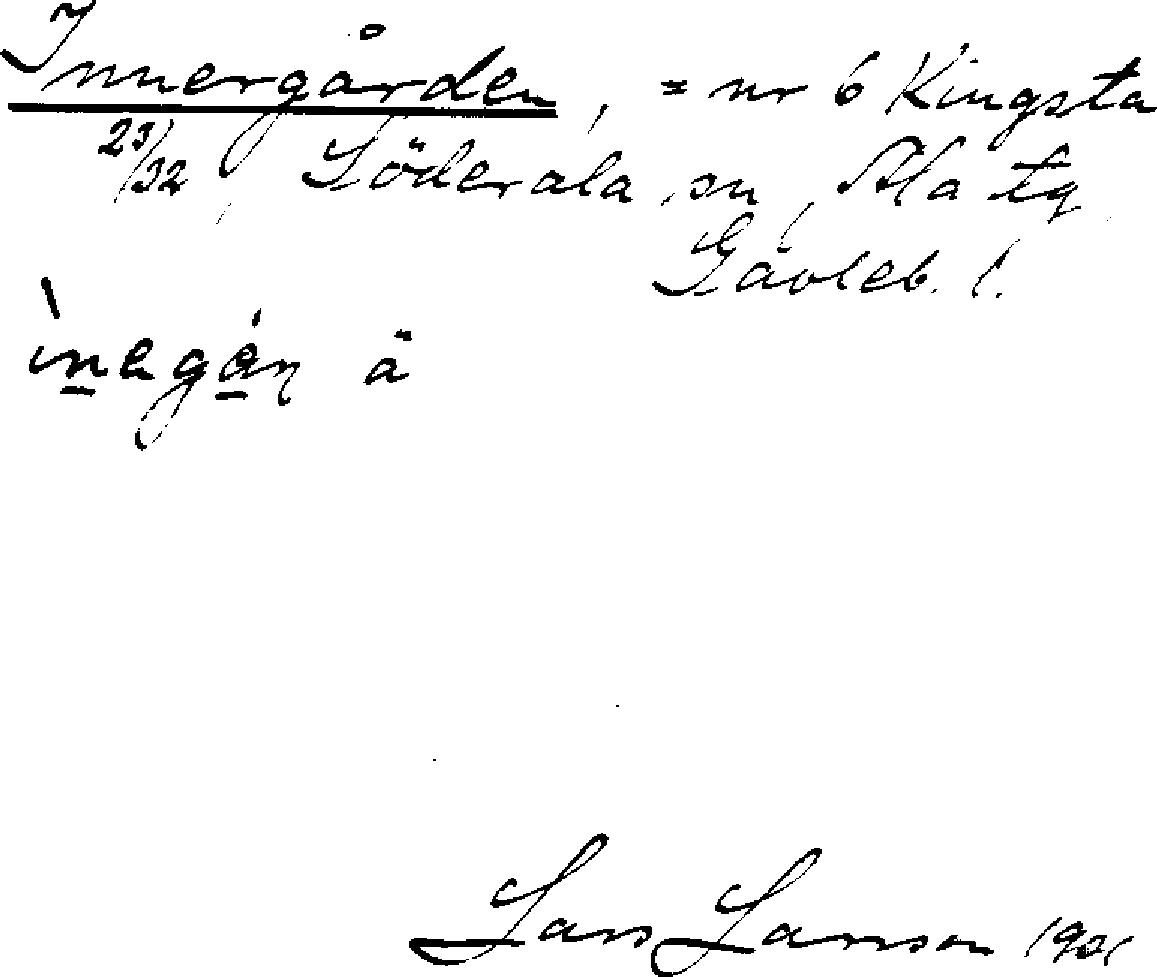 Innergården, = nr 6 Kingsta
23/32 Söderala sn, Ala tg
Gävleb. l.
ä
Lars Larsson 1901